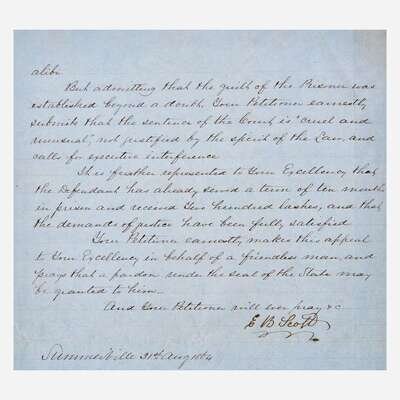 alibi.
But admitting that the guilt of the Prisoner was
established beyond a doubt, Your Petitioner earnestly
submits that the sentence of the Court is "cruel and
unusual", not justified by the spirit of the Law, and
calls for executive interference
It is further represented to Your Excellency that
the Defendant has already served a term of ten months
in prison and received two hundred lashes, and that
the demands of justice have been fully satisfied
Your Petitioner earnestly makes this appeal
to Your Excellency in behalf of a friendless man, and
prays that a pardon under the seal of the State may
be granted to him.
And Your Petitioner will ever pray &c
E B Scott
Summerville 31st Aug 1864